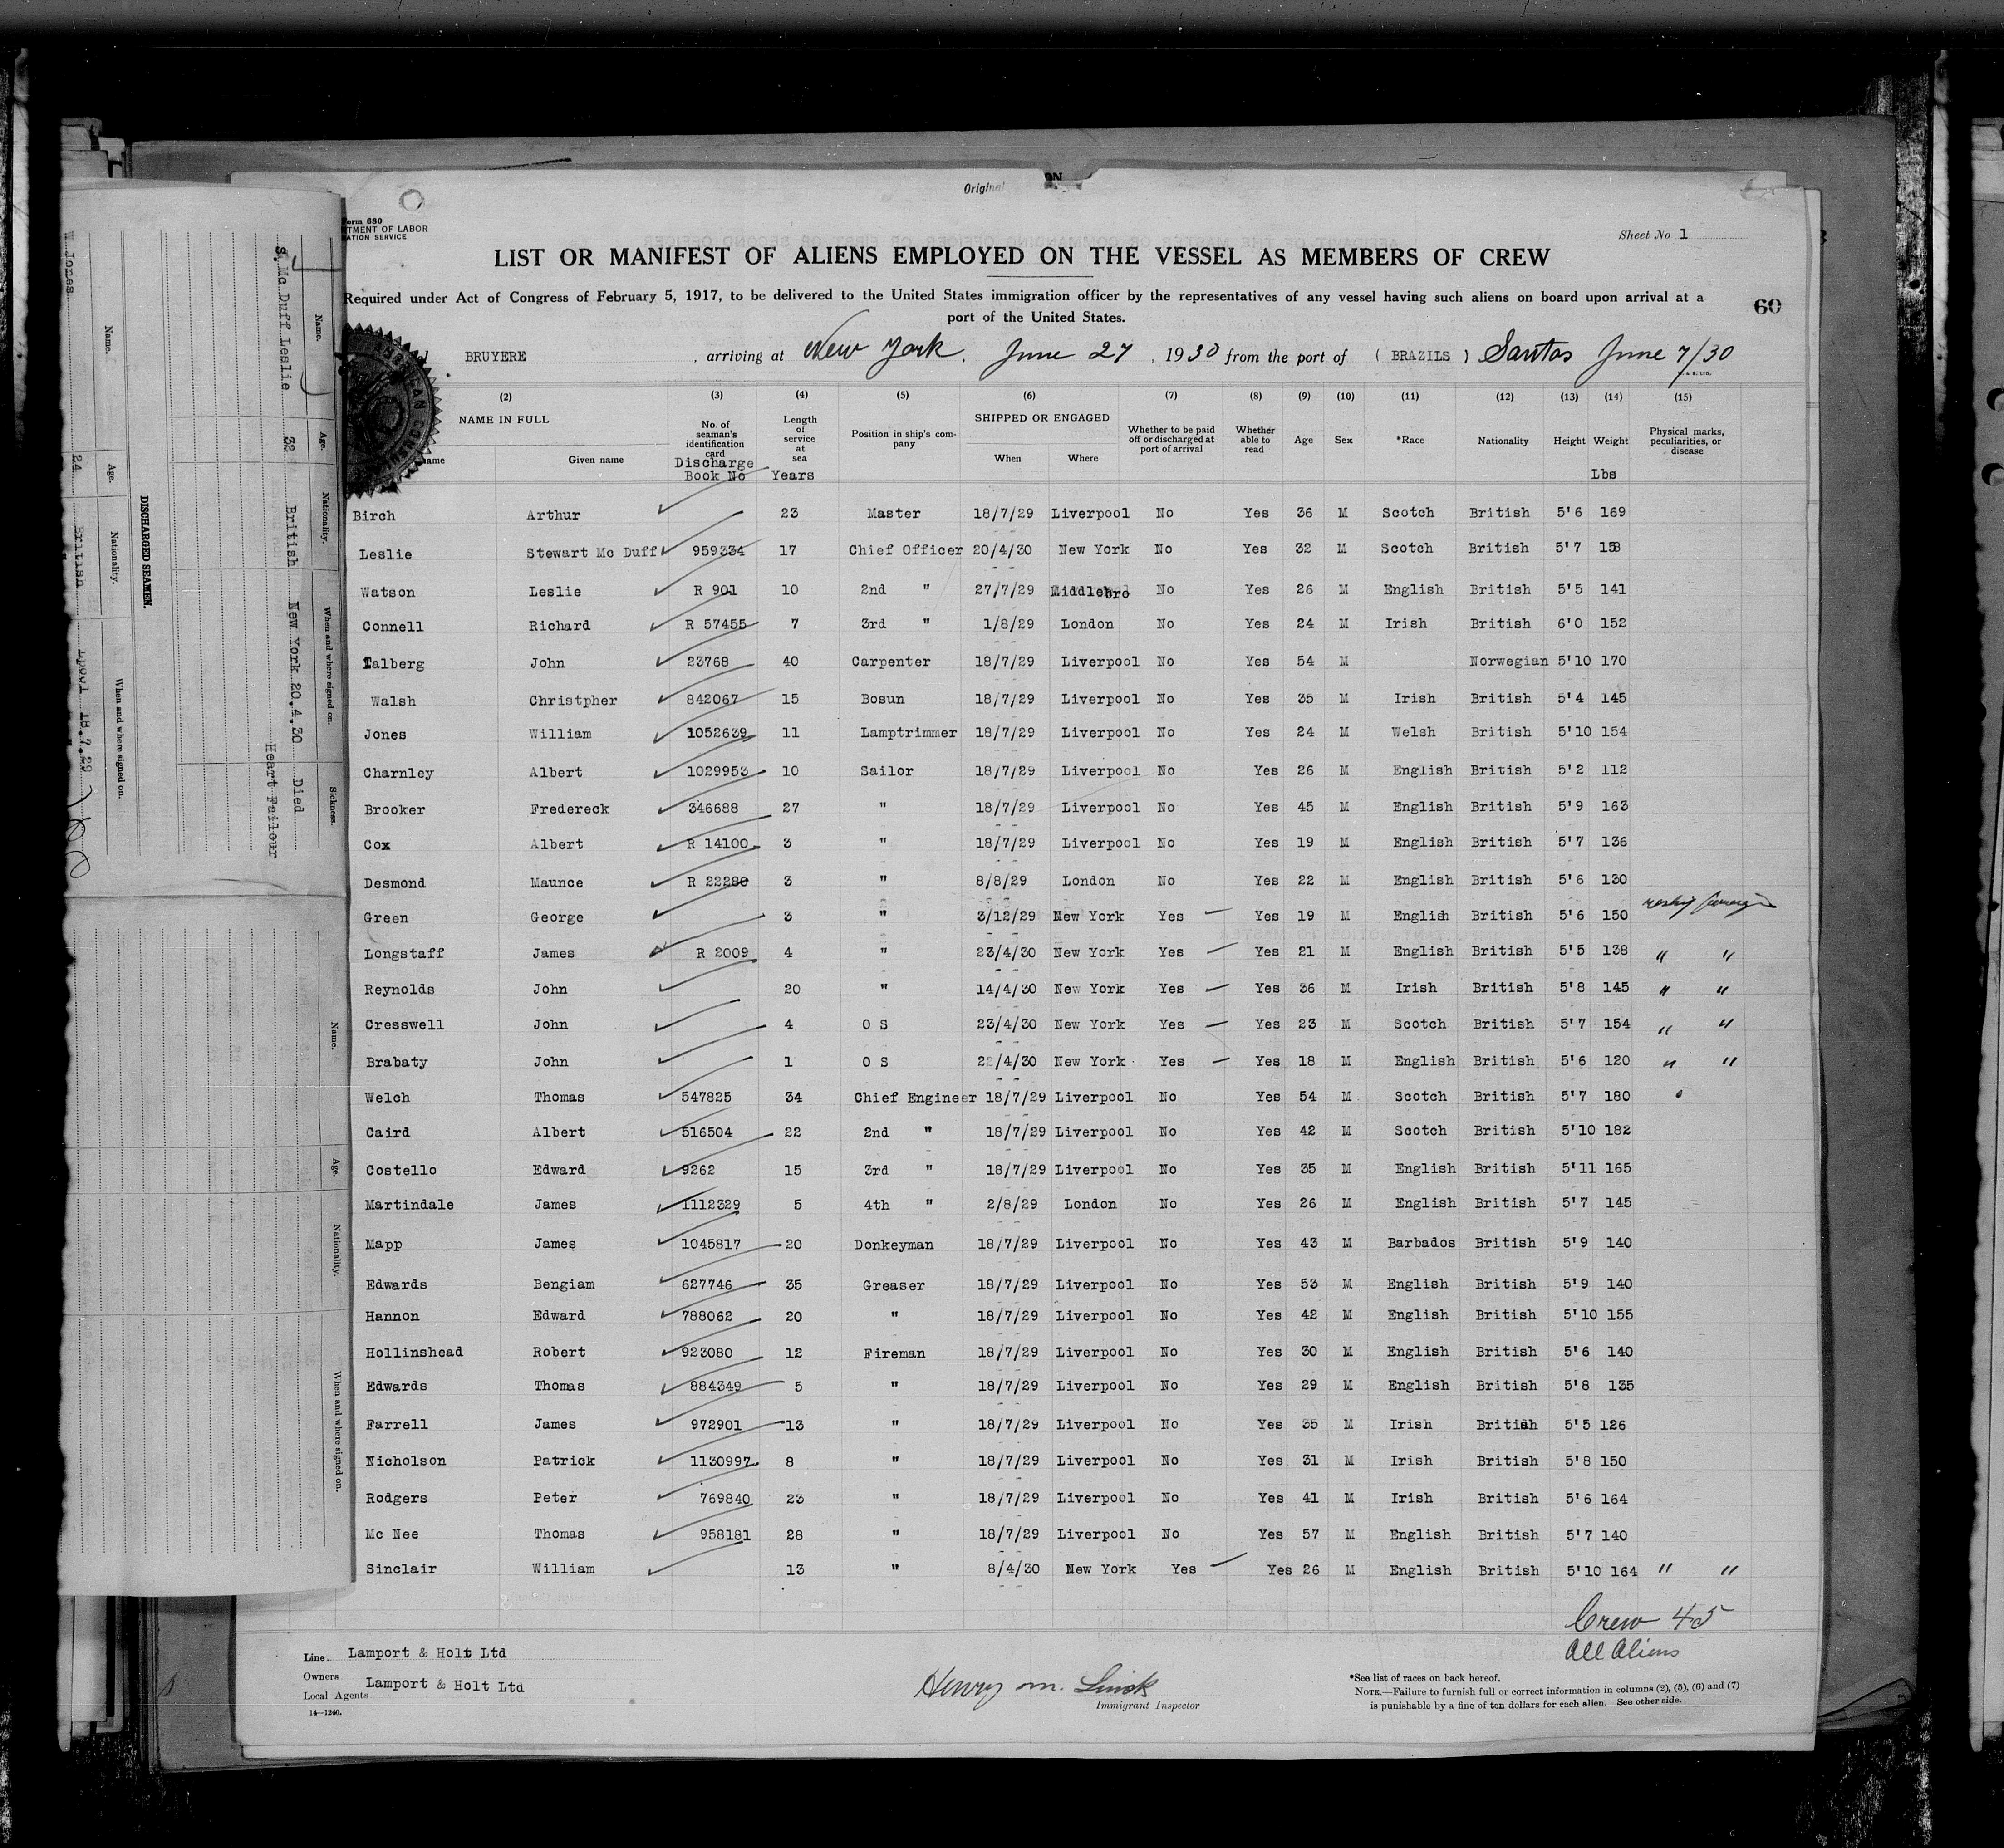 Original
ON
Form 680
TMENT OF LABOR
ATION SERVICE
Sheet No 1
LIST OR MANIFEST OF ALIENS EMPLOYED ON THE VESSEL AS MEMBERS OF CREW
Required under Act of Congress of February 5, 1917, to be delivered to the United States immigration officer by the representatives of any vessel having such aliens on board upon arrival at a
port of the United States.
60
BRUYERE , arriving at New York, June 27, 1930 from the port of ( BRAZILS ) Santos June 7/30
(2) (3) (4) (5) (6) (7) (8) (9) (10) (11) (12) (13) (14) (15)
NAME IN FULL
name Given name
No. of seaman's identification card
Discharge Book No
Length of service at sea
Years
Position in ship's company
SHIPPED OR ENGAGED
When Where
Whether to be paid off or discharged at port of arrival
Whether able to read
Age Sex *Race Nationality Height Weight
Lbs
Physical marks, peculiarities, or disease
Birch Arthur 23 Master 18/7/29 Liverpool No Yes 36 M Scotch British 5'6 169
Leslie Stewart Mc Duff 959334 17 Chief Officer 20/4/30 New York No Yes 32 M Scotch British 5'7 158
Watson Leslie R 901 10 2nd " 27/7/29 Middlebro No Yes 26 M English British 5'5 141
Connell Richard R 57455 7 3rd " 1/8/29 London No Yes 24 M Irish British 6'0 152
Talberg John 23768 40 Carpenter 18/7/29 Liverpool No Yes 54 M Norwegian 5'10 170
Walsh Christpher 842067 15 Bosun 18/7/29 Liverpool No Yes 35 M Irish British 5'4 145
Jones William 1052639 11 Lamptrimmer 18/7/29 Liverpool No Yes 24 M Welsh British 5'10 154
Charnley Albert 1029953 10 Sailor 18/7/29 Liverpool No Yes 26 M English British 5'2 112
Brooker Fredereck 346688 27 " 18/7/29 Liverpool No Yes 45 M English British 5'9 163
Cox Albert R 14100 3 " 18/7/29 Liverpool No Yes 19 M English British 5'7 136
Desmond Maunce R 22280 3 " 8/8/29 London No Yes 22 M English British 5'6 130
Green George 3 " 3/12/29 New York Yes Yes 19 M English British 5'6 150
Longstaff James R 2009 4 " 23/4/30 New York Yes Yes 21 M English British 5'5 138 " "
Reynolds John 20 " 14/4/30 New York Yes Yes 36 M Irish British 5'8 145 " "
Cresswell John 4 O S 23/4/30 New York Yes Yes 23 M Scotch British 5'7 154 " "
Brabaty John 1 O S 22/4/30 New York Yes Yes 18 M English British 5'6 120 " "
Welch Thomas 547825 34 Chief Engineer 18/7/29 Liverpool No Yes 54 M Scotch British 5'7 180
Caird Albert 516504 22 2nd " 18/7/29 Liverpool No Yes 42 M Scotch British 5'10 182
Costello Edward 9262 15 3rd " 18/7/29 Liverpool No Yes 35 M English British 5'11 165
Martindale James 1112329 5 4th " 2/8/29 London No Yes 26 M English British 5'7 145
Mapp James 1045817 20 Donkeyman 18/7/29 Liverpool No Yes 43 M Barbados British 5'9 140
Edwards Bengiam 627746 35 Greaser 18/7/29 Liverpool No Yes 53 M English British 5'9 140
Hannon Edward 788062 20 " 18/7/29 Liverpool No Yes 42 M English British 5'10 155
Hollinshead Robert 923080 12 Fireman 18/7/29 Liverpool No Yes 30 M English British 5'6 140
Edwards Thomas 884349 5 " 18/7/29 Liverpool No Yes 29 M English British 5'8 135
Farrell James 972901 13 " 18/7/29 Liverpool No Yes 35 M Irish British 5'5 126
Nicholson Patrick 1130997 8 " 18/7/29 Liverpool No Yes 31 M Irish British 5'8 150
Rodgers Peter 769840 23 " 18/7/29 Liverpool No Yes 41 M Irish British 5'6 164
Mc Nee Thomas 958181 28 " 18/7/29 Liverpool No Yes 57 M English British 5'7 140
Sinclair William 13 " 8/4/30 New York Yes Yes 26 M English British 5'10 164 " "
Crew 45
All Aliens
Line Lamport & Holt Ltd
Owners Lamport & Holt Ltd
Local Agents
14—1240.
Henry M.
Immigrant Inspector
*See list of races on back hereof.
NOTE.—Failure to furnish full or correct information in columns (2), (5), (6) and (7)
is punishable by a fine of ten dollars for each alien. See other side.
Name. Age. Nationality. When and where signed on. Sickness.
S. Mc Duff Leslie 32 British New York 20.4.30 Died
Heart Failour
DISCHARGED SEAMEN.
Name. Age. Nationality. When and where signed on.
W Jones 24 British Lpool 18.7.29
Name. Age. Nationality. When and where signed on.